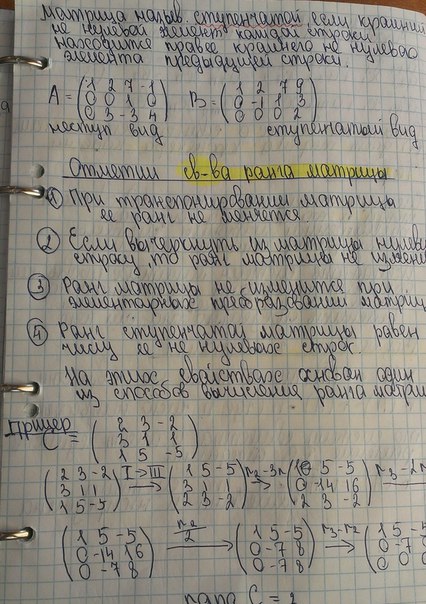 Матрица назыв. ступенчатой, если крайний
не нулевой элемент каждой строки
находится правее крайнего не нулевого
элемента предыдущей строки.
A = ( 1 2 7 -1   B = ( 1 2 7 9
0 0 1 0   0 -1 1 3
0 3 -3 4 )   0 0 0 2 )
неступ вид   ступенчатый вид
Отметим св-ва ранга матрицы
1 При транспонировании матрицы
ее ранг не меняется
2 Если вычеркнуть из матрицы нулев
строку, то ранг матрицы не измени
3 Ранг матрицы не изменится при
элементарных преобразовании матриц
4 Ранг ступенчатой матрицы равен
числу ее не нулевых строк.
На этих свойствах основан один
из способов вычисления ранга матри
Пример
C = ( 2 3 -2
3 1 1
1 5 -5 )
( 2 3 -2   I→III   ( 1 5 -5   r2-3r   ( 1 5 -5   r3-2
3 1 1   →   3 1 1   →   0 -14 16
1 5 -5 )   2 3 -2 )   2 3 -2 )
( 1 5 -5   r2/2   ( 1 5 -5   r3-r2   ( 1 5 -
0 -14 16   →   0 -7 8   →   0 -7
0 -7 8 )   0 -7 8 )   0 0
C = 2